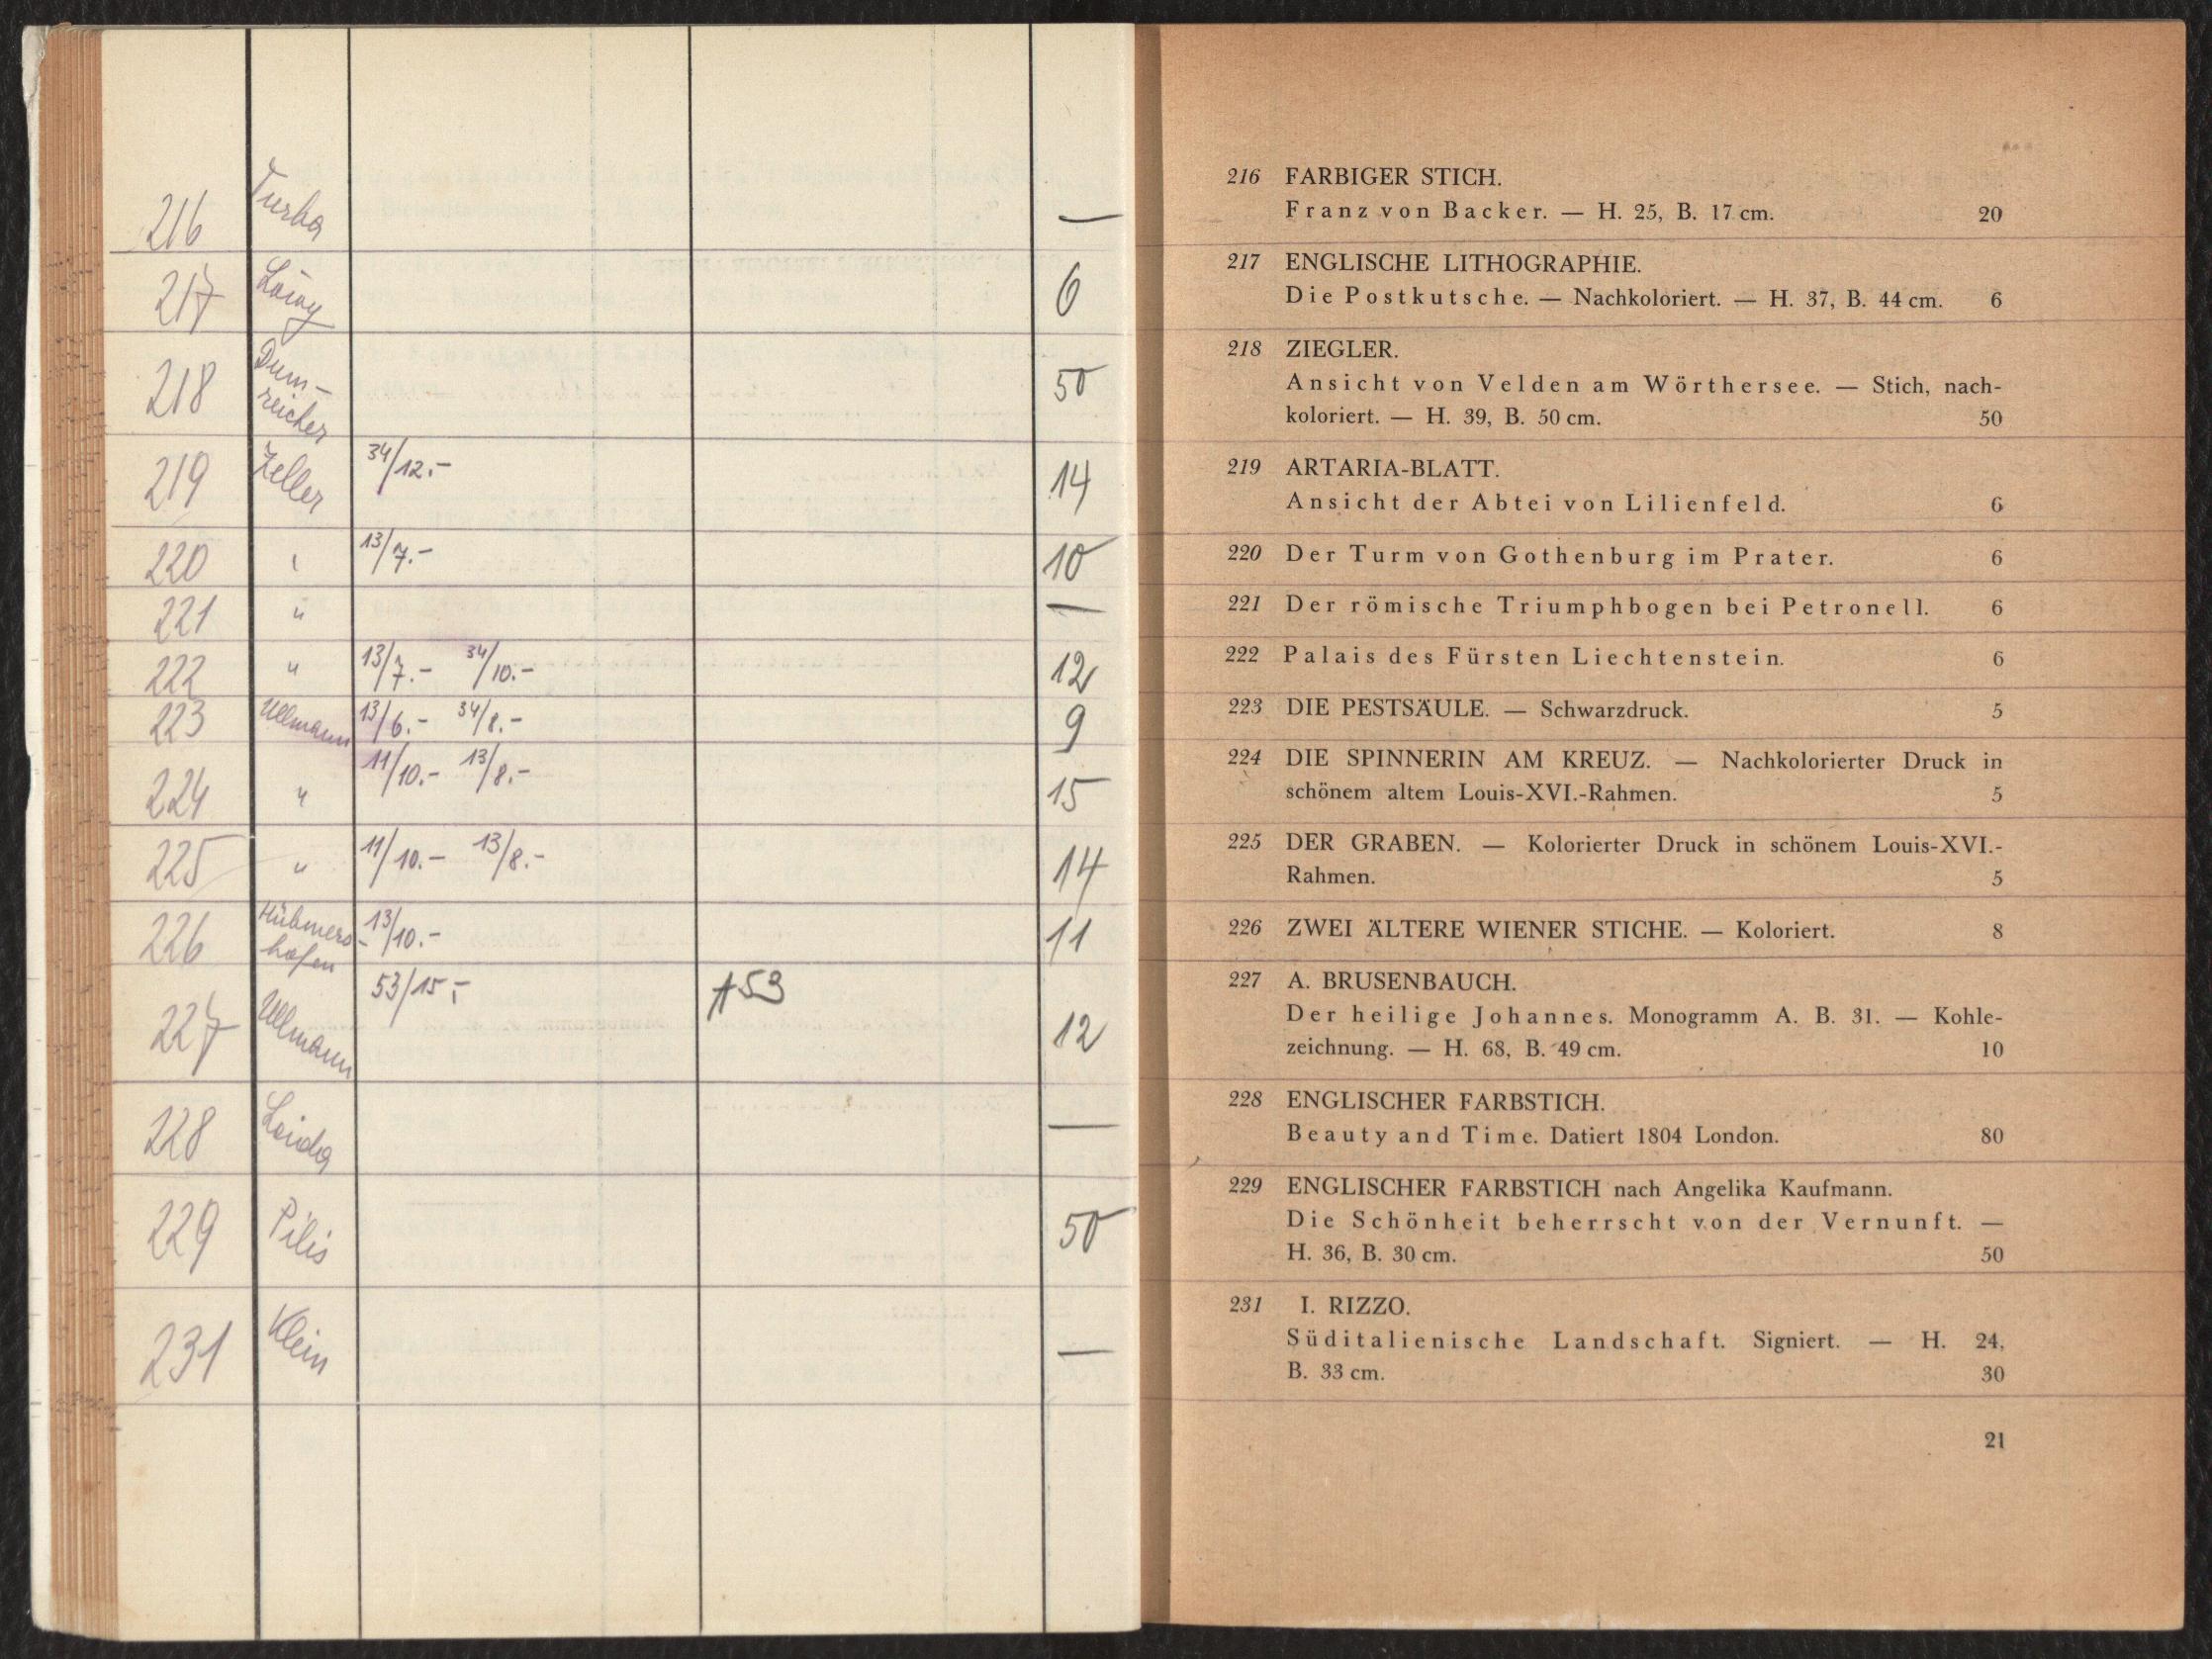 216 Turba —
217 6
218 Dum-
reicher 50
219 Zeller 34/12.- 14
220 " 13/7.- 10
221 " —
222 " 13/7.- 34/10.- 12
223 Ullmann 13/6.- 34/8.- 9
224 " 11/10.- 13/8.- 15
225 " 11/10.- 13/8.- 14
226 Hübmers-
hofen 13/10.- 11
227 Ullmann 53/15.- 53 12
228 —
229 Pilis 50
231 Klein —
216 FARBIGER STICH.
Franz von Backer. — H. 25, B. 17 cm. 20
217 ENGLISCHE LITHOGRAPHIE.
Die Postkutsche. — Nachkoloriert. — H. 37, B. 44 cm. 6
218 ZIEGLER.
Ansicht von Velden am Wörthersee. — Stich, nach-
koloriert. — H. 39, B. 50 cm. 50
219 ARTARIA-BLATT.
Ansicht der Abtei von Lilienfeld. 6
220 Der Turm von Gothenburg im Prater. 6
221 Der römische Triumphbogen bei Petronell. 6
222 Palais des Fürsten Liechtenstein. 6
223 DIE PESTSÄULE. — Schwarzdruck. 5
224 DIE SPINNERIN AM KREUZ. — Nachkolorierter Druck in
schönem altem Louis-XVI.-Rahmen. 5
225 DER GRABEN. — Kolorierter Druck in schönem Louis-XVI.-
Rahmen. 5
226 ZWEI ÄLTERE WIENER STICHE. — Koloriert. 8
227 A. BRUSENBAUCH.
Der heilige Johannes. Monogramm A. B. 31. — Kohle-
zeichnung. — H. 68, B. 49 cm. 10
228 ENGLISCHER FARBSTICH.
Beauty and Time. Datiert 1804 London. 80
229 ENGLISCHER FARBSTICH nach Angelika Kaufmann.
Die Schönheit beherrscht von der Vernunft. —
H. 36, B. 30 cm. 50
231 I. RIZZO.
Süditalienische Landschaft. Signiert. — H. 24,
B. 33 cm. 30
21